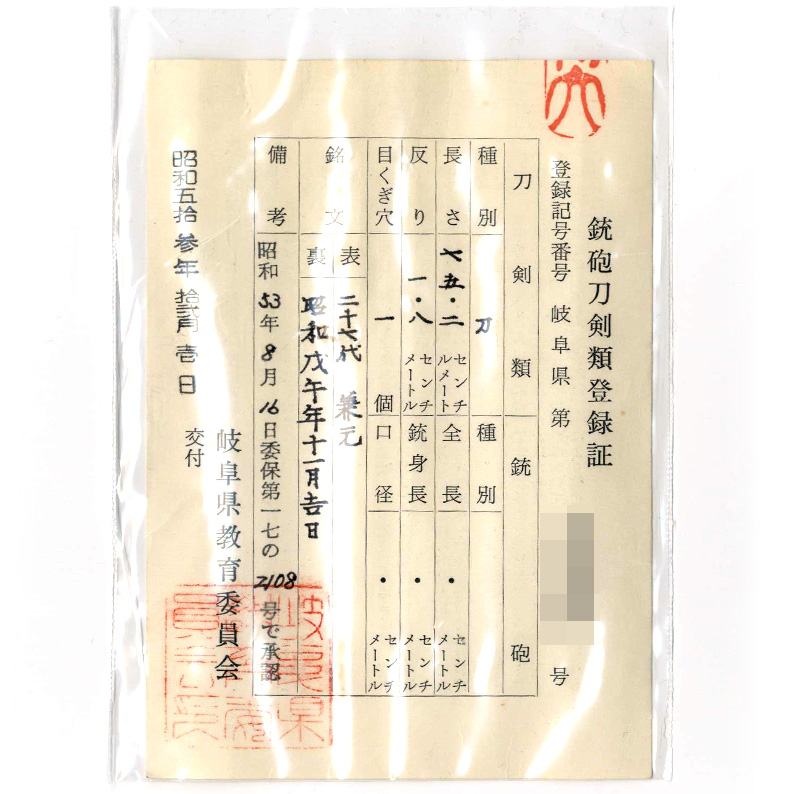 銃砲刀剣類登録証
登録記号番号 岐阜県 第 号
刀剣類 銃砲
種別 刀 種別
長さ 七五・二 センチメートル 全長 ・ センチメートル
反り 一・八 センチメートル 銃身長 ・ センチメートル
目くぎ穴 一個 口径 ・ センチメートル
銘文 表 二十七代 兼元
裏 昭和戊午年十一月吉日
備考 昭和53年8月16日委保第一七の2108号で承認
岐阜県教育委員会
昭和五拾参年拾弐月壱日 交付